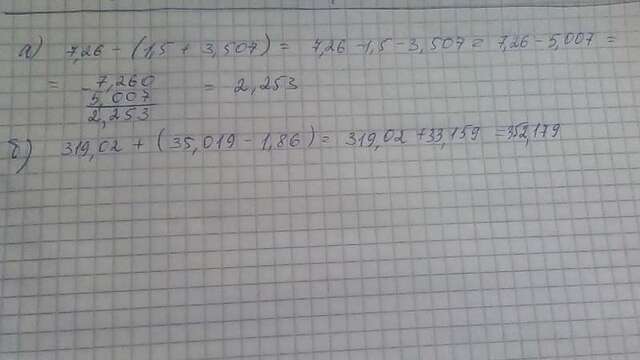 а) 7,26 - (1,5 + 3,507) = 7,26 - 1,5 - 3,507 = 7,26 - 5,007 =
= - 7,260 = 2,253
5,007
2,253
б) 319,02 + (35,019 - 1,86) = 319,02 + 33,159 = 352,179